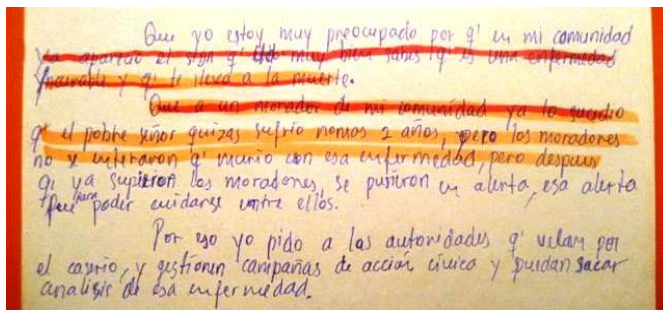 Que yo estoy muy preocupado por q' en mi comunidad
ya apareció el sida q' muy bien sabes q' es una enfermedad
incurable y q' te lleva a la muerte.
Que a un morador de mi comunidad ya lo sucedio
q' el pobre señor quizas sufrio nomas 2 años, pero los moradores
no se enteraron q' murio con esa enfermedad, pero despues
q' ya supieron los moradores, se pusieron en alerta, esa alerta
fue para poder cuidarse entre ellos.
Por eso yo pido a las autoridades q' velan por
el caserio, y gestionen campañas de acción cívica y puedan sacar
analisis de esa enfermedad.